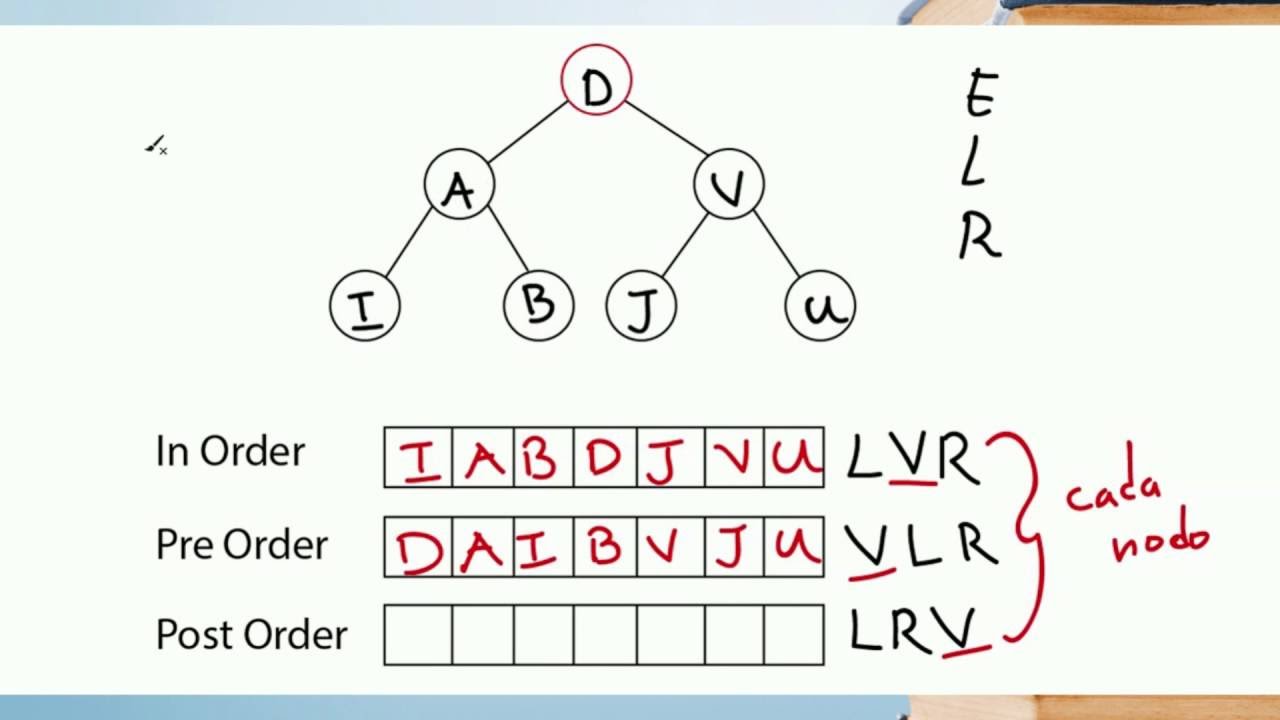 D
A V
I B J U
E
L
R
In Order I A B D J V U LVR
Pre Order D A I B V J U VLR
Post Order LRV
cada
nodo